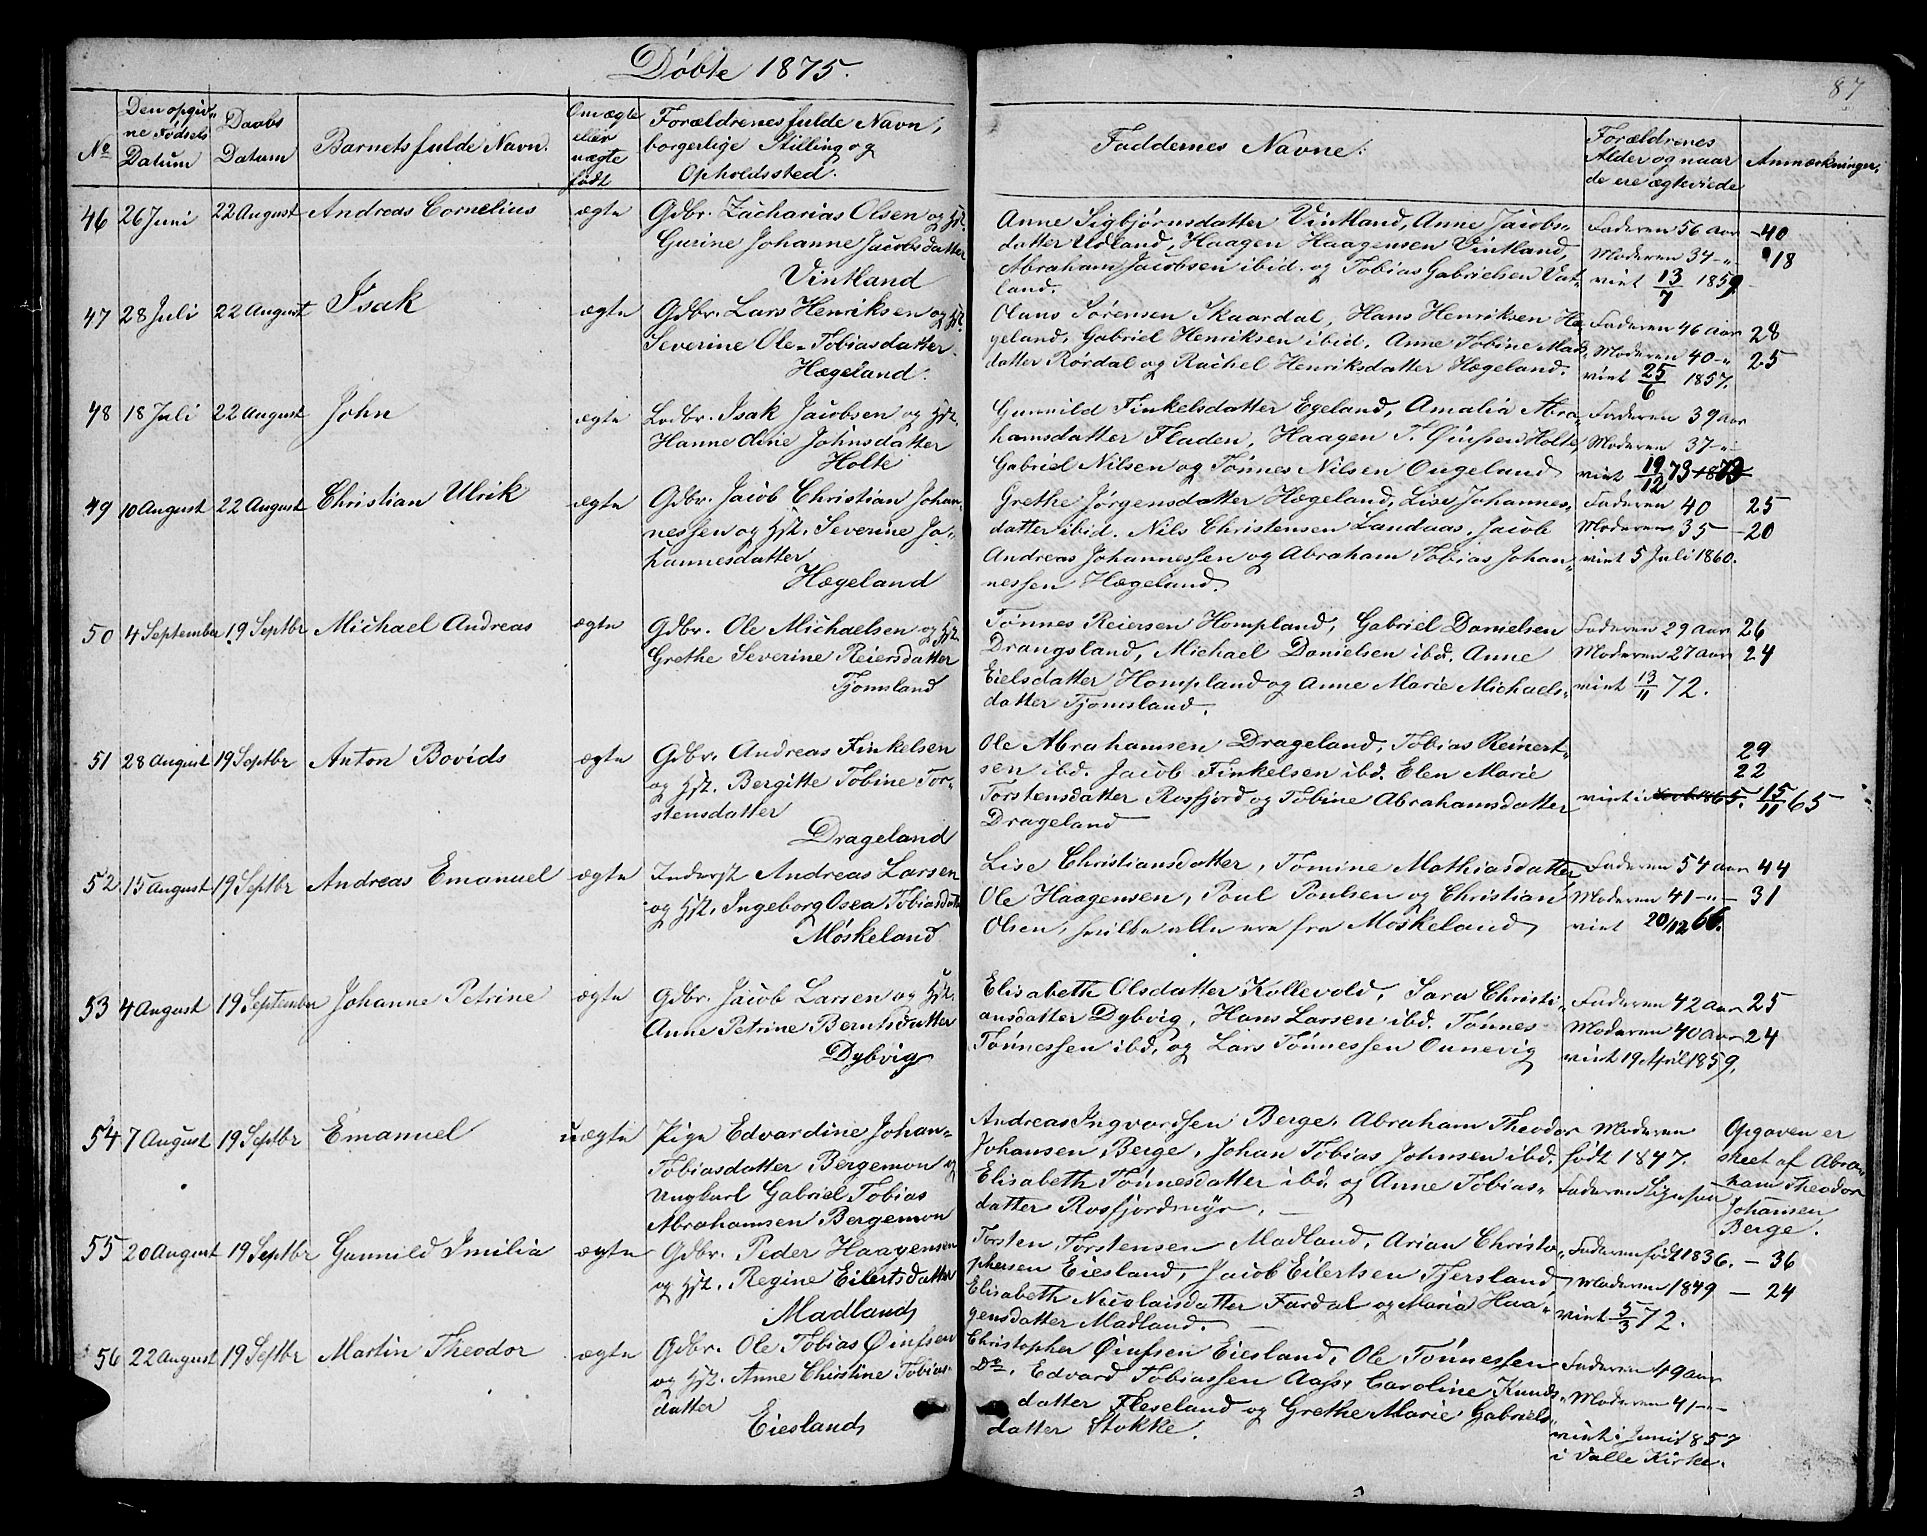 Døbte 1875.
87
No
Den opgiv-
ne Fødsels
Datum
Daabs
Datum
Barnets fulde Navn.
Om ægte
eller
uægte
født
Forældrenes fulde Navn,
borgerlige Stilling og
Opholdssted.
Faddernes Navne.
Forældrenes
Alder og naar
de ere ægteviede
Anmærkninger.
46 26 Juni 22 August Andreas Cornelius ægte
Gdbr. Zacharias Olsen og Hst.
Gurine Johanne Jacobsdatter
Vintland
Anne Sigbjørnsdatter Vintland, Anne Jacobs-
datter Udland, Haagen Haagensen Vintland,
Abraham Jacobsen ibid. og Tobias Gabrielsen Vat-
land.
Faderen 56 Aar - 40
Moderen 34 -"- 18
viet 13/7 1859
47 28 Juli 22 August Isak ægte
Gdbr. Lars Henriksen og Hst.
Severine Ole-Tobiasdatter
Hægeland.
Olaus Sørensen Skaardal, Hans Henriksen Hæ-
geland, Gabriel Henriksen ibid. Anne Tobine Mads-
datter Rørdal og Rachel Henriksdatter Hægeland.
Faderen 46 Aar 28
Moderen 40 -"- 25
viet 25/6 1857.
48 18 Juli 22 August John ægte
Lodbr. Isak Jacobsen og Hst.
Hanne Oline Johnsdatter
Holte
Gunvild Finkelsdatter Egeland, Amalia Abra-
hamsdatter Fladen, Haagen T. Øiufsen Holte,
Gabriel Nilsen og Tønnes Nilsen Ougeland
Faderen 39 Aar
Moderen 37 -"-
viet 19/12 73 1873
49 10 August 22 August Christian Ulrik ægte
Gdbr. Jacob Christian Johan-
nessen og Hst. Severine Jo-
hannesdatter
Hægeland
Grethe Jørgensdatter Hægeland, Lise Johannes-
datter ibid. Nils Christensen Landaas, Jacob
Andreas Johannessen og Abraham Tobias Johan-
nessen Hægeland.
Faderen 40 25
Moderen 35 - 20
viet 5 Juli 1860.
50 4 September 19 Septbr Michael Andreas ægte
Gdbr. Ole Michaelsen og Hst.
Grethe Severine Reiersdatter
Tjomsland
Tønnes Reiersen Hompland, Gabriel Danielsen
Drangsland, Michael Danielsen ibd. Anne
Eielsdatter Hompland og Anne Marie Michaels-
datter Tjomsland.
Faderen 29 Aar 26
Moderen 27 Aar 24
viet 13/11 72.
51 28 August 19 Septbr Anton Bovids ægte
Gdbr. Andreas Finkelsen
og Hst. Bergitte Tobine Tor-
stensdatter
Drageland
Ole Abrahamsen Drageland, Tobias Reinert-
sen ibd. Jacob Finkelsen ibd. Elen Marie
Torstensdatter Rosfjord og Tobine Abrahamsdatter
Drageland
29
22
viet i 1865. 15/11 65
52 15 August 19 Septbr Andreas Emanuel ægte
Inderst Andreas Larsen
og Hst. Ingeborg Osea Tobiasdatter
Møskeland
Lise Christiansdatter, Tomine Mathiasdatter
Ole Haagensen, Poul Poulsen og Christian
Olsen, hvilke alle ere fra Møskeland
Faderen 54 Aar 44
Moderen 41 -"- 31
viet 20/12 66.
53 4 August 19 September Johanne Petrine ægte
Gdbr. Jacob Larsen og Hst.
Anne Petrine Berntsdatter
Dybvig
Elisabeth Olsdatter Kollevold, Sara Christi-
ansdatter Dybvig, Hans Larsen ibd. Tønnes
Tønnessen ibd. og Lars Tønnessen Ounevig
Faderen 42 Aar 25
Moderen 40 Aar 24
viet 19 April 1859.
54 7 August 19 Septbr Emanuel uægte
Pige Edvardine Johan-
Tobiasdatter Bergemon og
Ungkarl Gabriel Tobias
Abrahamsen Bergemon
Andreas Ingvardsen Berge, Abraham Theodor
Johansen Berge, Johan Tobias Johnsen ibd.
Elisabeth Tønnesdatter ibd. og Anne Tobias-
datter Rosfjordmyr. —
Moderen
født 1847.
Faderen
Opgaven er
skeet af Abra-
ham Theodor
Johansen
Berge.
55 20 August 19 Septbr Gunnild Imilia ægte
Gdbr. Peder Haagensen
og Hst. Regine Eilertsdatter
Madland
Torsten Torstensen Madland, Arian Christo-
phersen Eiesland, Jacob Eilertsen Tjersland
Elisabeth Nicolaisdatter Fardal og Maria Haa-
gensdatter Madland. —
Faderen født 1836. - 36
Moderen 1849 - 24
viet 5/3 72.
56 22 August 19 Septbr Martin Theodor ægte
Gdbr. Ole Tobias Øiufsen
og Hst. Anne Christine Tobias-
datter
Eiesland
Christopher Øiufsen Eiesland, Ole Tønnessen
Do. Edvard Tobiassen Aas, Caroline Knuds-
datter Fleseland og Grethe Marie Gabriels-
datter Stokke.
Faderen 49 Aar
Moderen 41 -"-
viet i Juni 1857
i Valle Kirke.